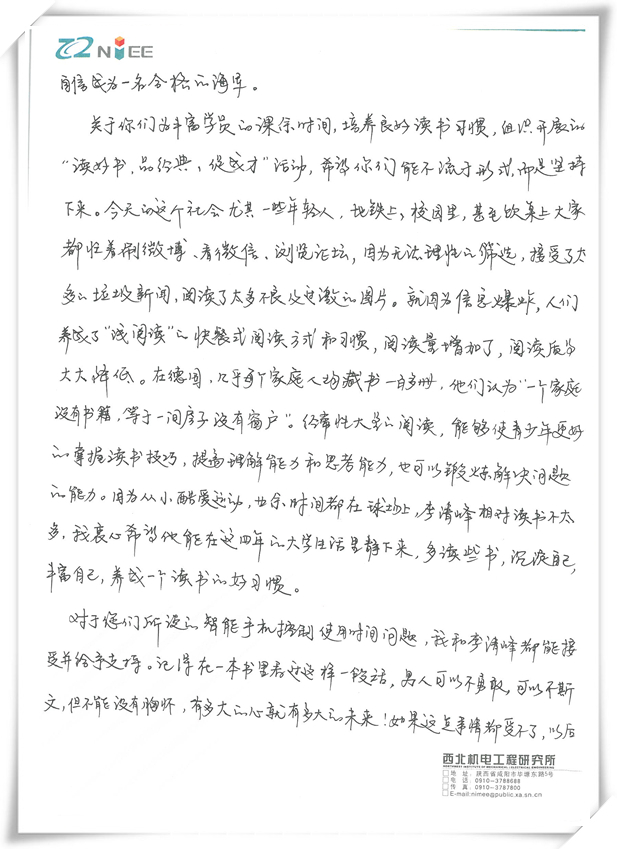 202 NIEE
自信成为一名合格的海军。
关于你们为丰富学员的课余时间，培养良好读书习惯，组织开展的
“读好书、品经典、促成才”活动，希望你们能不流于形式，而是坚持
下来。今天的这个社会尤其一些年轻人，地铁上，校园里，甚至饭桌上大家
都忙着刷微博、看微信、浏览论坛，因为无法理性的筛选，接受了太
多的垃圾新闻，阅读了太多不良及过激的图片。就因为信息爆炸，人们
养成了“浅阅读”的快餐式阅读方式和习惯，阅读量增加了，阅读质量
大大降低。在德国，几乎每个家庭人均藏书一百多册，他们认为“一个家庭
没有书籍，等于一间房子没有窗户”。经常性大量的阅读，能够使青少年更好
的掌握读书技巧，提高理解能力和思考能力，也可以锻炼解决问题
的能力。因为从小酷爱运动，业余时间都在球场上，李清峰相对读书不太
多，我衷心希望他能在这四年的大学生活里静下来，多读些书，沉淀自己，
丰富自己，养成一个读书的好习惯。
对于您们所设的智能手机控制使用时间问题，我和李清峰都能接
受并给予支持。记得在一本书里看过这样一段话，男人可以不勇敢，可以不斯
文，但不能没有胸怀，有多大的心就有多大的未来！如果这点事情都受不了，以后
西北机电工程研究所
NORTHWEST INSTITUTE OF MECHANICAL & ELECTRICAL ENGINEERING
地 址：陕西省咸阳市毕塬东路5号
电 话：0910-3788688
传 真：0910-3787800
E-mail:nimee@public.xa.sn.cn